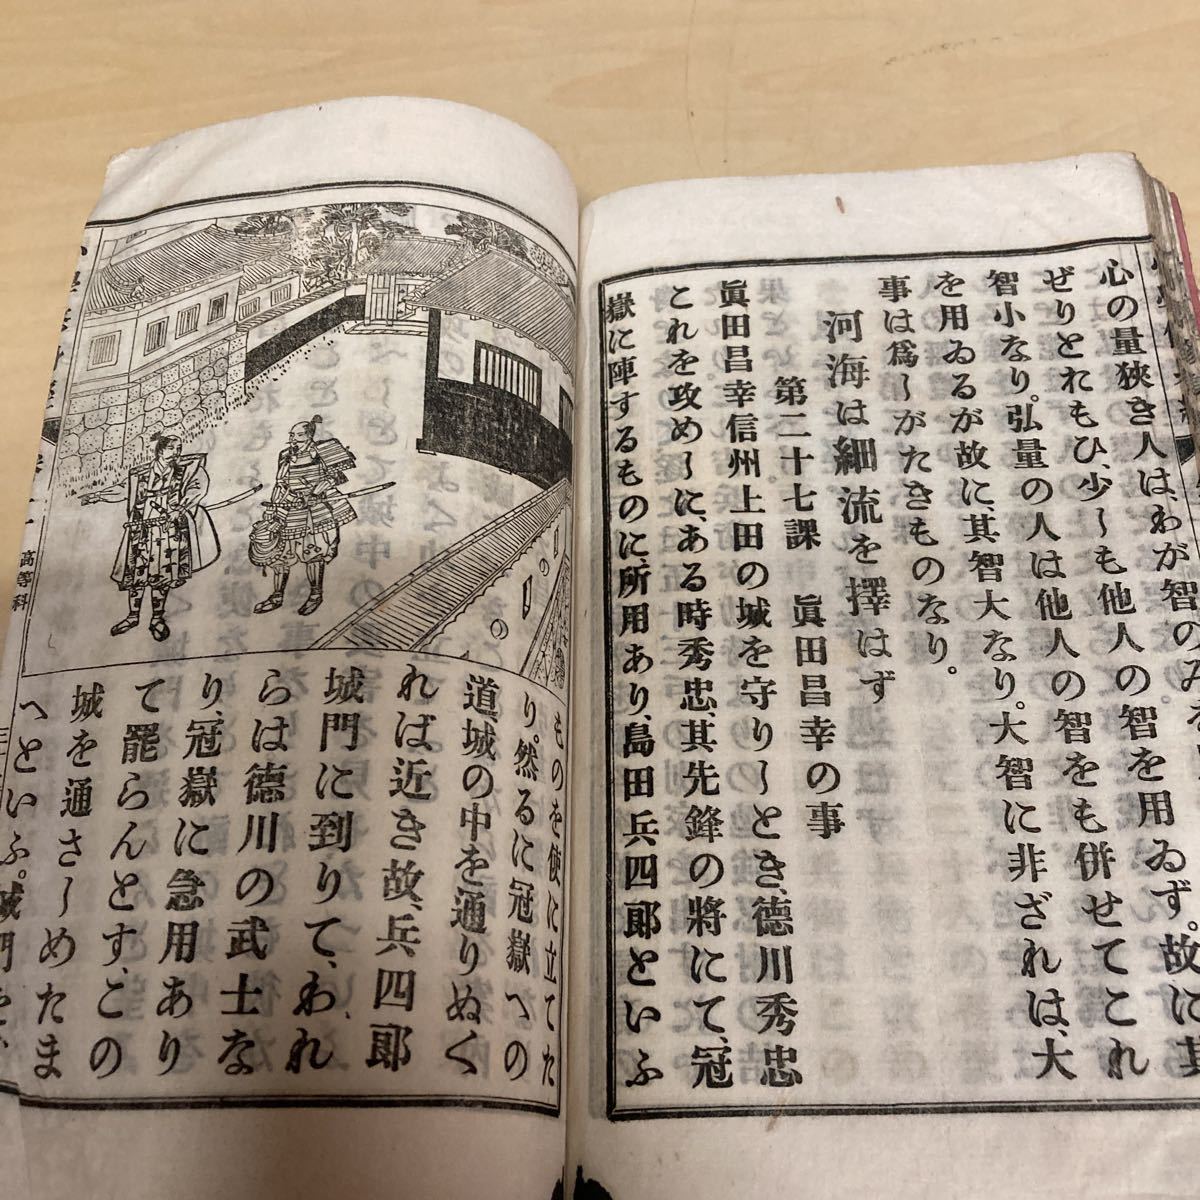 心の量狹き人は、わが智のみを用ゐず。故に其
ぜりとれもひ、少しも他人の智を用ゐず。故に其
智小なり。弘量の人は他人の智をも併せてこれ
を用ゐるが故に、其智大なり。大智に非ざれは、大
事は爲しがたきものなり。
河海は細流を擇はず
第二十七課 眞田昌幸の事
眞田昌幸信州上田の城を守りしとき、德川秀忠
これを攻めしに、ある時秀忠、其先鋒の將にて、冠
嶽に陣するものに、所用あり、島田兵四郞といふ
ものを使に立てた
り。然るに冠嶽への
道、城の中を通りぬく
れば近き故、兵四郞
城門に到りて、われ
らは德川の武士な
り、冠嶽に急用あり
て罷らんとす、この
城を通さしめたま
へといふ。城門を、
高等科